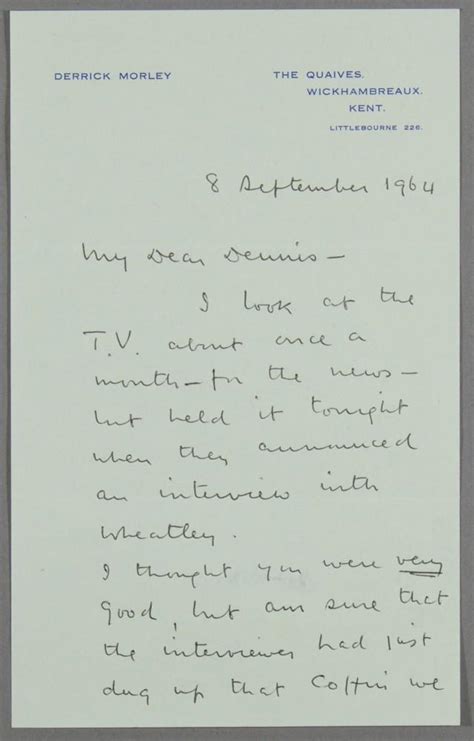 DERRICK MORLEY
THE QUAIVES.
WICKHAMBREAUX.
KENT.
LITTLEBOURNE 226.
8 September 1964
My Dear Dennis –
I look at the
T.V. about once a
month – for the news –
but held it tonight
when they announced
an interview with
Wheatley.
I thought you were very
good, but am sure that
the interviewer had just
dug up that Coffin we